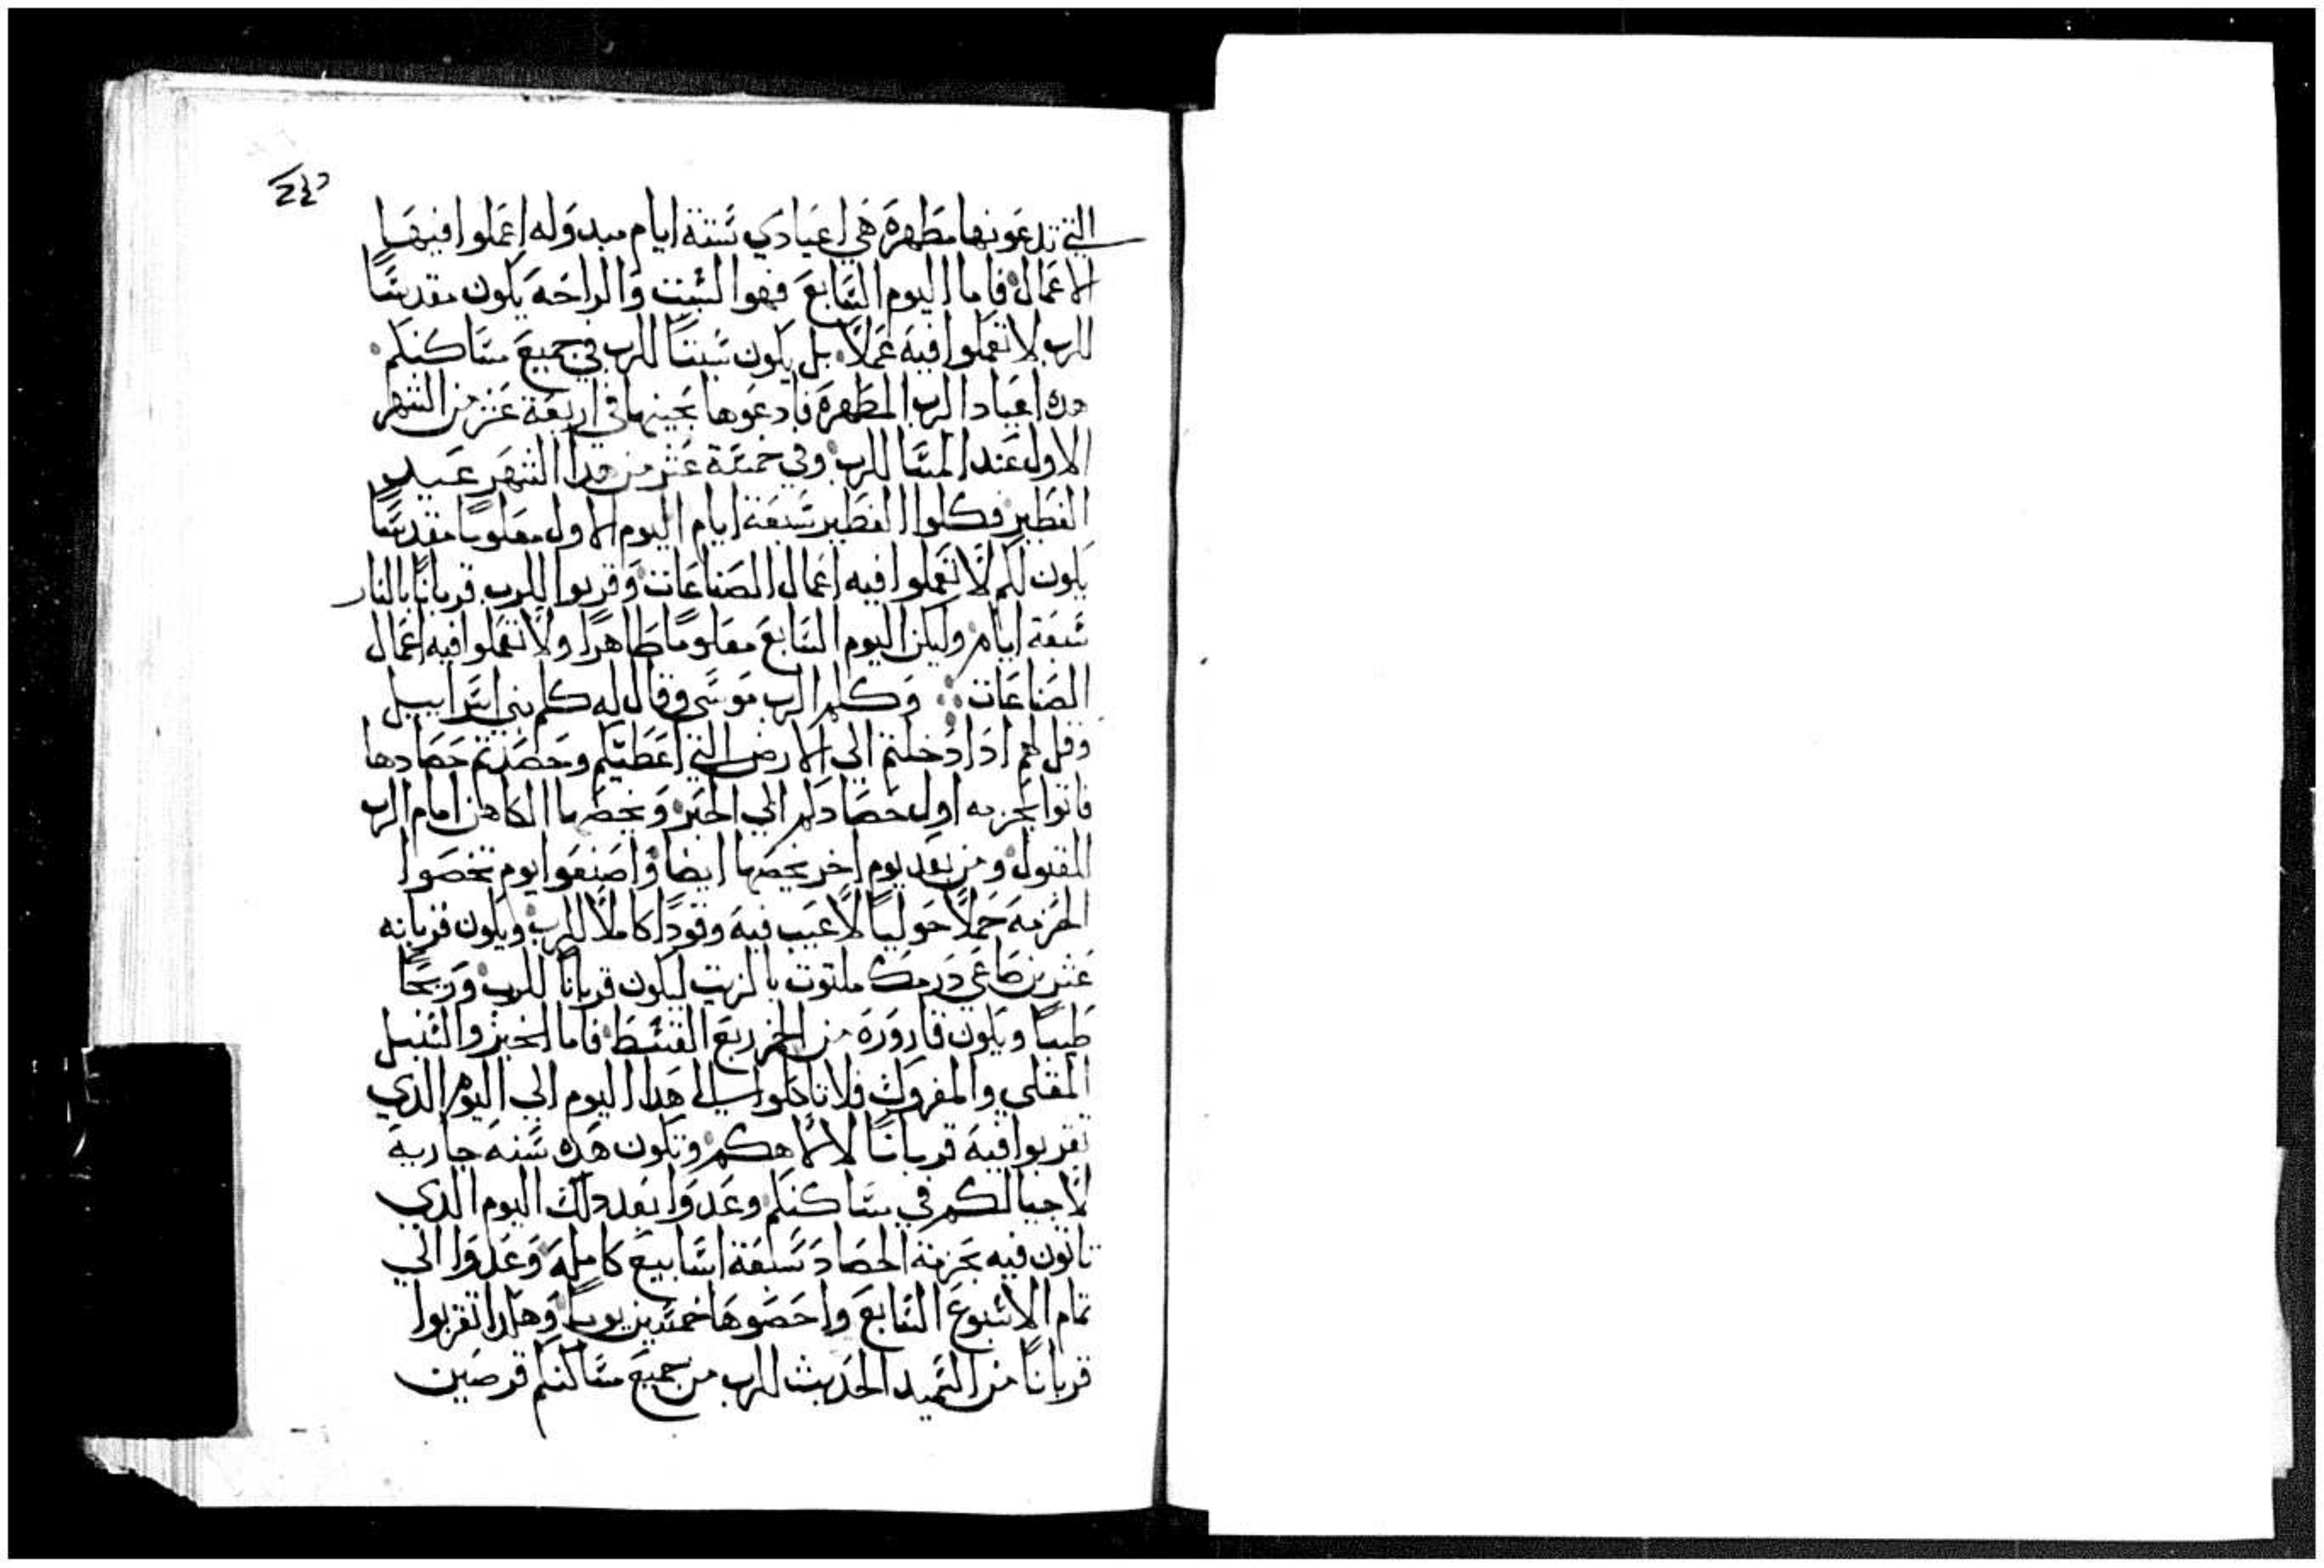 التي تدعونها مطهرة هي اعيادي ستة ايام مبدوله اعملوا فيها
الاعمال فاما اليوم السابع فهوا السبت والراحه يكون مقدسًا
للرب لا تعملوا فيه عملاً بل يكون سبتًا للرب في جميع مساكنكم
هده اعياد الرب المطهرة فادعوها بحينها في اربعة عشر من الشهر
الاول عند المسا للرب وفي خمسة عشر من هدا الشهر عيد
الفطير فكلوا الفطير سبعة ايام اليوم الاول معلومًا مقدسًا
يكون لكم لا تعملوا فيه اعمال الصناعات وقربوا للرب قربانًا بالنار
سبعة ايام وليكن اليوم السابع معلومًا طاهرًا ولا تعملوا فيه اعمال
الصناعات وكلم الرب موسى وقال له كلم بني اسراييل
وقل لهم ادا دخلتم الي الارض التي اعطيكم وحصدتم حصادها
فاتوا بحزمه اول حصادكم الي الحبر ويخصها الكاهن امام الرب
المقبول ومن بعد يوم اخر يخصها ايضًا واصنعوا يوم تخصوا
الحزمه حملاً حوليًا لا عيب فيه وقودًا كاملاً للرب ويكون قربانه
عشرين صاعي درمك ملتوت بالزيت ليكون قربانًا للرب وريحًا
طيبًا ويكون قارورة من الخمر ربع القسط فاما الخبز والسنبل
المقلي والمفروك فلا تاكلوا الى هدا اليوم الي اليوم الدي
تقربوا فيه قربانًا لالاهكم وتكون هده سنه جاريه
لاجيالكم في مساكنكم وعدوا بعد دلك اليوم الدي
تاتون فيه بحزمة الحصاد سبعة اسابيع كامله وعدوا الي
تمام الاسبوع السابع واحصوها خمسين يومًا وهكدا تقربوا
قربانًا من السميد الحديث للرب من جميع مساكنكم قرصين